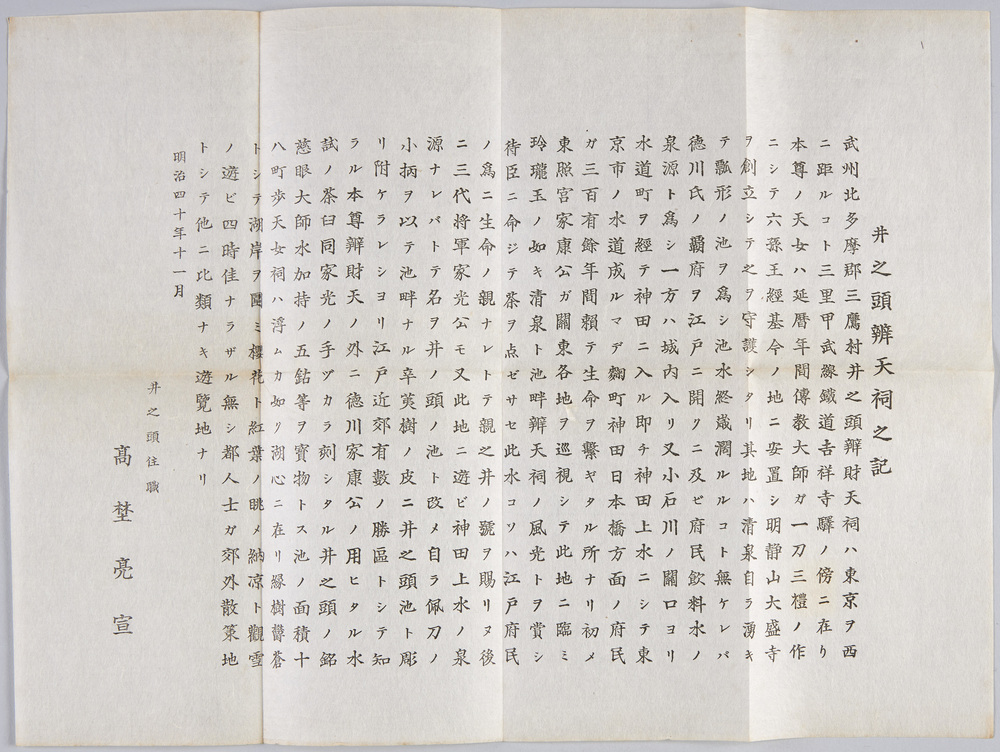 井之頭辨天祠之記
武州北多摩郡三鷹村井之頭辯財天祠ハ東京ヲ西
ニ距ルコト三里甲武線鐵道吉祥寺驛ノ傍ニ在リ
本尊ノ天女ハ延暦年間傳教大師ガ一刀三禮ノ作
ニシテ六孫王經基今ノ地ニ安置シ明静山大盛寺
ヲ創立シテ之ヲ守護シタリ其地ハ清泉自ラ湧キ
テ瓢形ノ池ヲ爲シ池水終歳涸ルルコト無ケレバ
德川氏ノ覇府ヲ江戸ニ開クニ及ビ府民飲料水ノ
泉源ト爲シ一方ハ城内入リ又小石川ノ關口ヨリ
水道町ヲ經テ神田ニ入ル即チ神田上水ニシテ東
京市ノ水道成ルマデ麴町神田日本橋方面ノ府民
ガ三百有餘年間賴テ生命ヲ繋ギタル所ナリ初メ
東照宮家康公ガ關東各地ヲ巡視シテ此地ニ臨ミ
玲瓏玉ノ如キ清泉ト池畔辨天祠ノ風光トヲ賞シ
待臣ニ命ジテ茶ヲ点ゼサセ此水コソハ江戸府民
ノ爲ニ生命ノ親ナレトテ親之井ノ號ヲ賜リヌ後
ニ三代将軍家光公モ又此地ニ遊ビ神田上水ノ泉
源ナレバトテ名ヲ井ノ頭ノ池ト改メ自ラ佩刀ノ
小柄ヲ以テ池畔ナル辛荑樹ノ皮ニ井之頭池ト彫
リ附ケラレシヨリ江戸近郊有數ノ勝區トシテ知
ラル本尊辯財天ノ外ニ德川家康公ノ用ヒタル水
試ノ茶臼同家光ノ手ヅカラ刻シタル井之頭ノ銘
慈眼大師水加持ノ五鈷等ヲ寶物トス池ノ面積十
八町歩天女祠ハ浮ムカ如ク湖心ニ在リ緑樹欝蒼
トシテ湖岸ヲ圍ミ櫻花ト紅葉ノ眺メ納凉ト觀雪
ノ遊ビ四時佳ナラザル無シ都人士ガ郊外散策地
トシテ他ニ比類ナキ遊覽地ナリ
明治四十年十一月
井之頭住職
髙埜亮宣